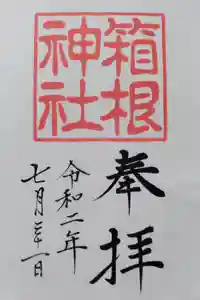 箱根
神社
奉拝
令和二年
七月三十一日